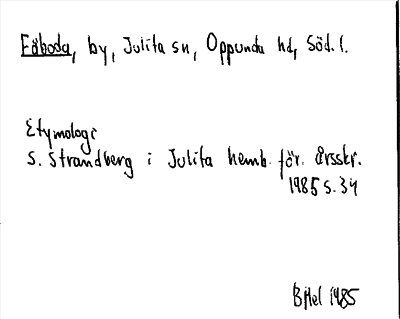 Fåboda, by, Julita sn, Oppunda hd, Söd. l.
Etymologi
S. Strandberg i Julita hemb. för. årsskr.
1985 s. 34
1985